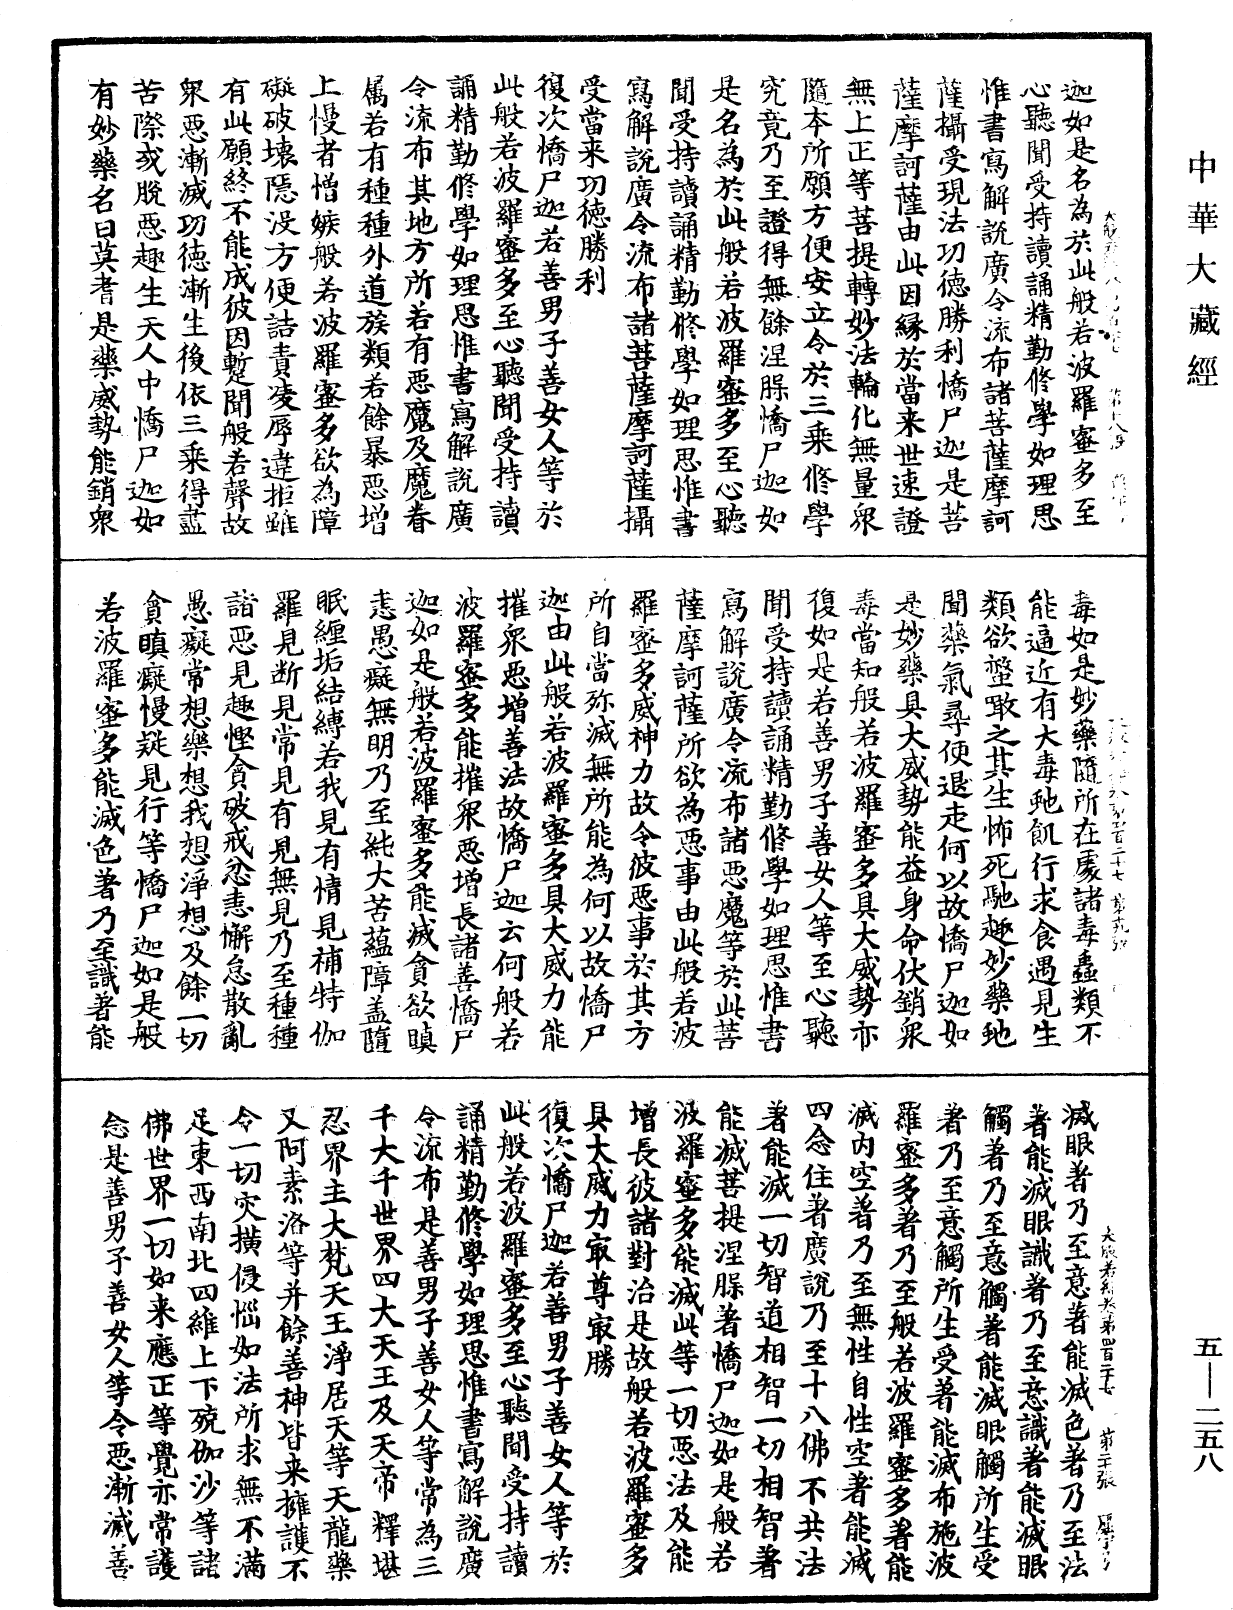 中華大藏經
迦如是名為於此般若波羅蜜多至
心聽聞受持讀誦精勤修學如理思
惟書寫解說廣令流布諸菩薩摩訶
薩攝受現法功德勝利憍尸迦是菩
薩摩訶薩由此因緣於當来世速證
無上正等菩提轉妙法輪化無量衆
隨本所願方便安立令於三乘修學
究竟乃至證得無餘涅槃憍尸迦如
是名為於此般若波羅蜜多至心聽
聞受持讀誦精勤修學如理思惟書
寫解說廣令流布諸菩薩摩訶薩攝
受當来功德勝利
復次憍尸迦若善男子善女人等於
此般若波羅蜜多至心聽聞受持讀
誦精勤修學如理思惟書寫解說廣
令流布其地方所若有惡魔及魔眷
屬若有種種外道族類若餘暴惡增
上慢者憎嫉般若波羅蜜多欲為障
礙破壞隱没方便詰責凌辱違拒雖
有此願終不能成彼因蹔聞般若聲故
衆惡漸滅功德漸生後依三乘得盡
苦際或脫惡趣生天人中憍尸迦如
有妙藥名曰莫耆是藥威勢能銷衆
毒如是妙藥隨所在處諸毒蟲類不
能逼近有大毒虵飢行求食遇見生
類欲螫噉之其生怖死馳趣妙藥虵
聞藥氣尋便退走何以故憍尸迦如
是妙藥具大威勢能益身命伏銷衆
毒當知般若波羅蜜多具大威勢亦
復如是若善男子善女人等至心聽
聞受持讀誦精勤修學如理思惟書
寫解說廣令流布諸惡魔等於此菩
薩摩訶薩所欲為惡事由此般若波
羅蜜多威神力故令彼惡事於其方
所自當殄滅無所能為何以故憍尸
迦由此般若波羅蜜多具大威力能
摧衆惡增善法故憍尸迦云何般若
波羅蜜多能摧衆惡增長諸善憍尸
迦如是般若波羅蜜多能滅貪欲瞋
恚愚癡無明乃至純大苦蘊障盖隨
眠纏垢結縛若我見有情見補特伽
羅見断見常見有見無見乃至種種
諸惡見趣慳貪破戒忿恚懈怠散亂
愚癡常想樂想我想淨想及餘一切
貪瞋癡慢疑見行等憍尸迦如是般
若波羅蜜多能滅色著乃至識著能
大般若經卷第四百二十七 第二張
滅眼著乃至意著能滅色著乃至法
著能滅眼識著乃至意識著能滅眼
觸著乃至意觸著能滅眼觸所生受
著乃至意觸所生受著能滅布施波
羅蜜多著乃至般若波羅蜜多著能
滅内空著乃至無性自性空著能滅
四念住著廣說乃至十八佛不共法
著能滅一切智道相智一切相智著
能滅菩提涅槃著憍尸迦如是般若
波羅蜜多能滅此等一切惡法及能
增長彼諸對治是故般若波羅蜜多
具大威力㝡尊㝡勝
復次憍尸迦若善男子善女人等於
此般若波羅蜜多至心聽聞受持讀
誦精勤修學如理思惟書寫解說廣
令流布是善男子善女人等常為三
千大千世界四大天王及天帝釋堪
忍界主大梵天王淨居天等天龍藥
叉阿素洛等并餘善神皆来擁護不
令一切災橫侵惱如法所求無不滿
足東西南北四維上下殑伽沙等諸
佛世界一切如来應正等覺亦常護
念是善男子善女人等令惡漸滅善
五—二五八